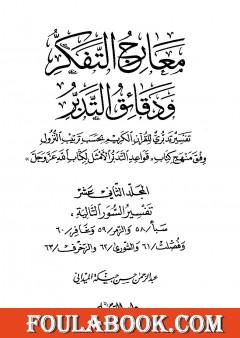 معارج التفكر
ودقائق التدبر
تفسير تدبري للقرآن الكريم بحسب ترتيب النزول
وفق منهج كتاب «قواعد التدبر الأمثل لكتاب الله عز وجل»
المجلد الثاني عشر
تفسير السور التالية:
سبأ/٥٨ والزمر/٥٩ وغافر/٦٠
وفصلت/٦١ والشورى/٦٢ والزخرف/٦٣
عبد الرحمن حسن حبنكة الميداني
FOULABOOK.COM